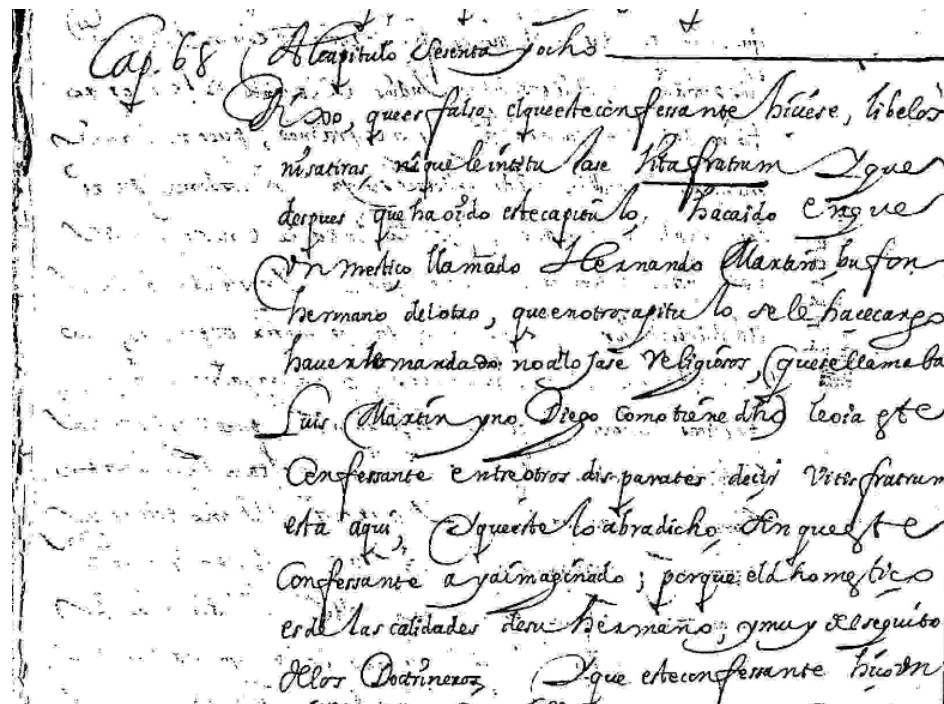 Cap. 68 Al capitulo sesenta y ocho
Dixo, que es falso el que este confessante hiciese, libelos
ni satiras, ni que le intitulase Vita fratrum Y que
despues que ha oido este capitulo, ha caido en que
Un mestiço llamado Hernando Martin, bufon
hermano del otro, que en otro capitulo se le hace cargo
haver le mandado no alojase Religiosos, (que se llamaba
Luis Martin y no Diego como tiene dho) le oia este
Confessante entre otros disparates decir Vitis fratrum
está aqui, Y que este lo abra dicho sin que este
Confessante aya imaginado; porque el dho mestiço
es de las calidades de su hermano, y muy del seguito
de los Doctrineros, Y que este confessante hiço un